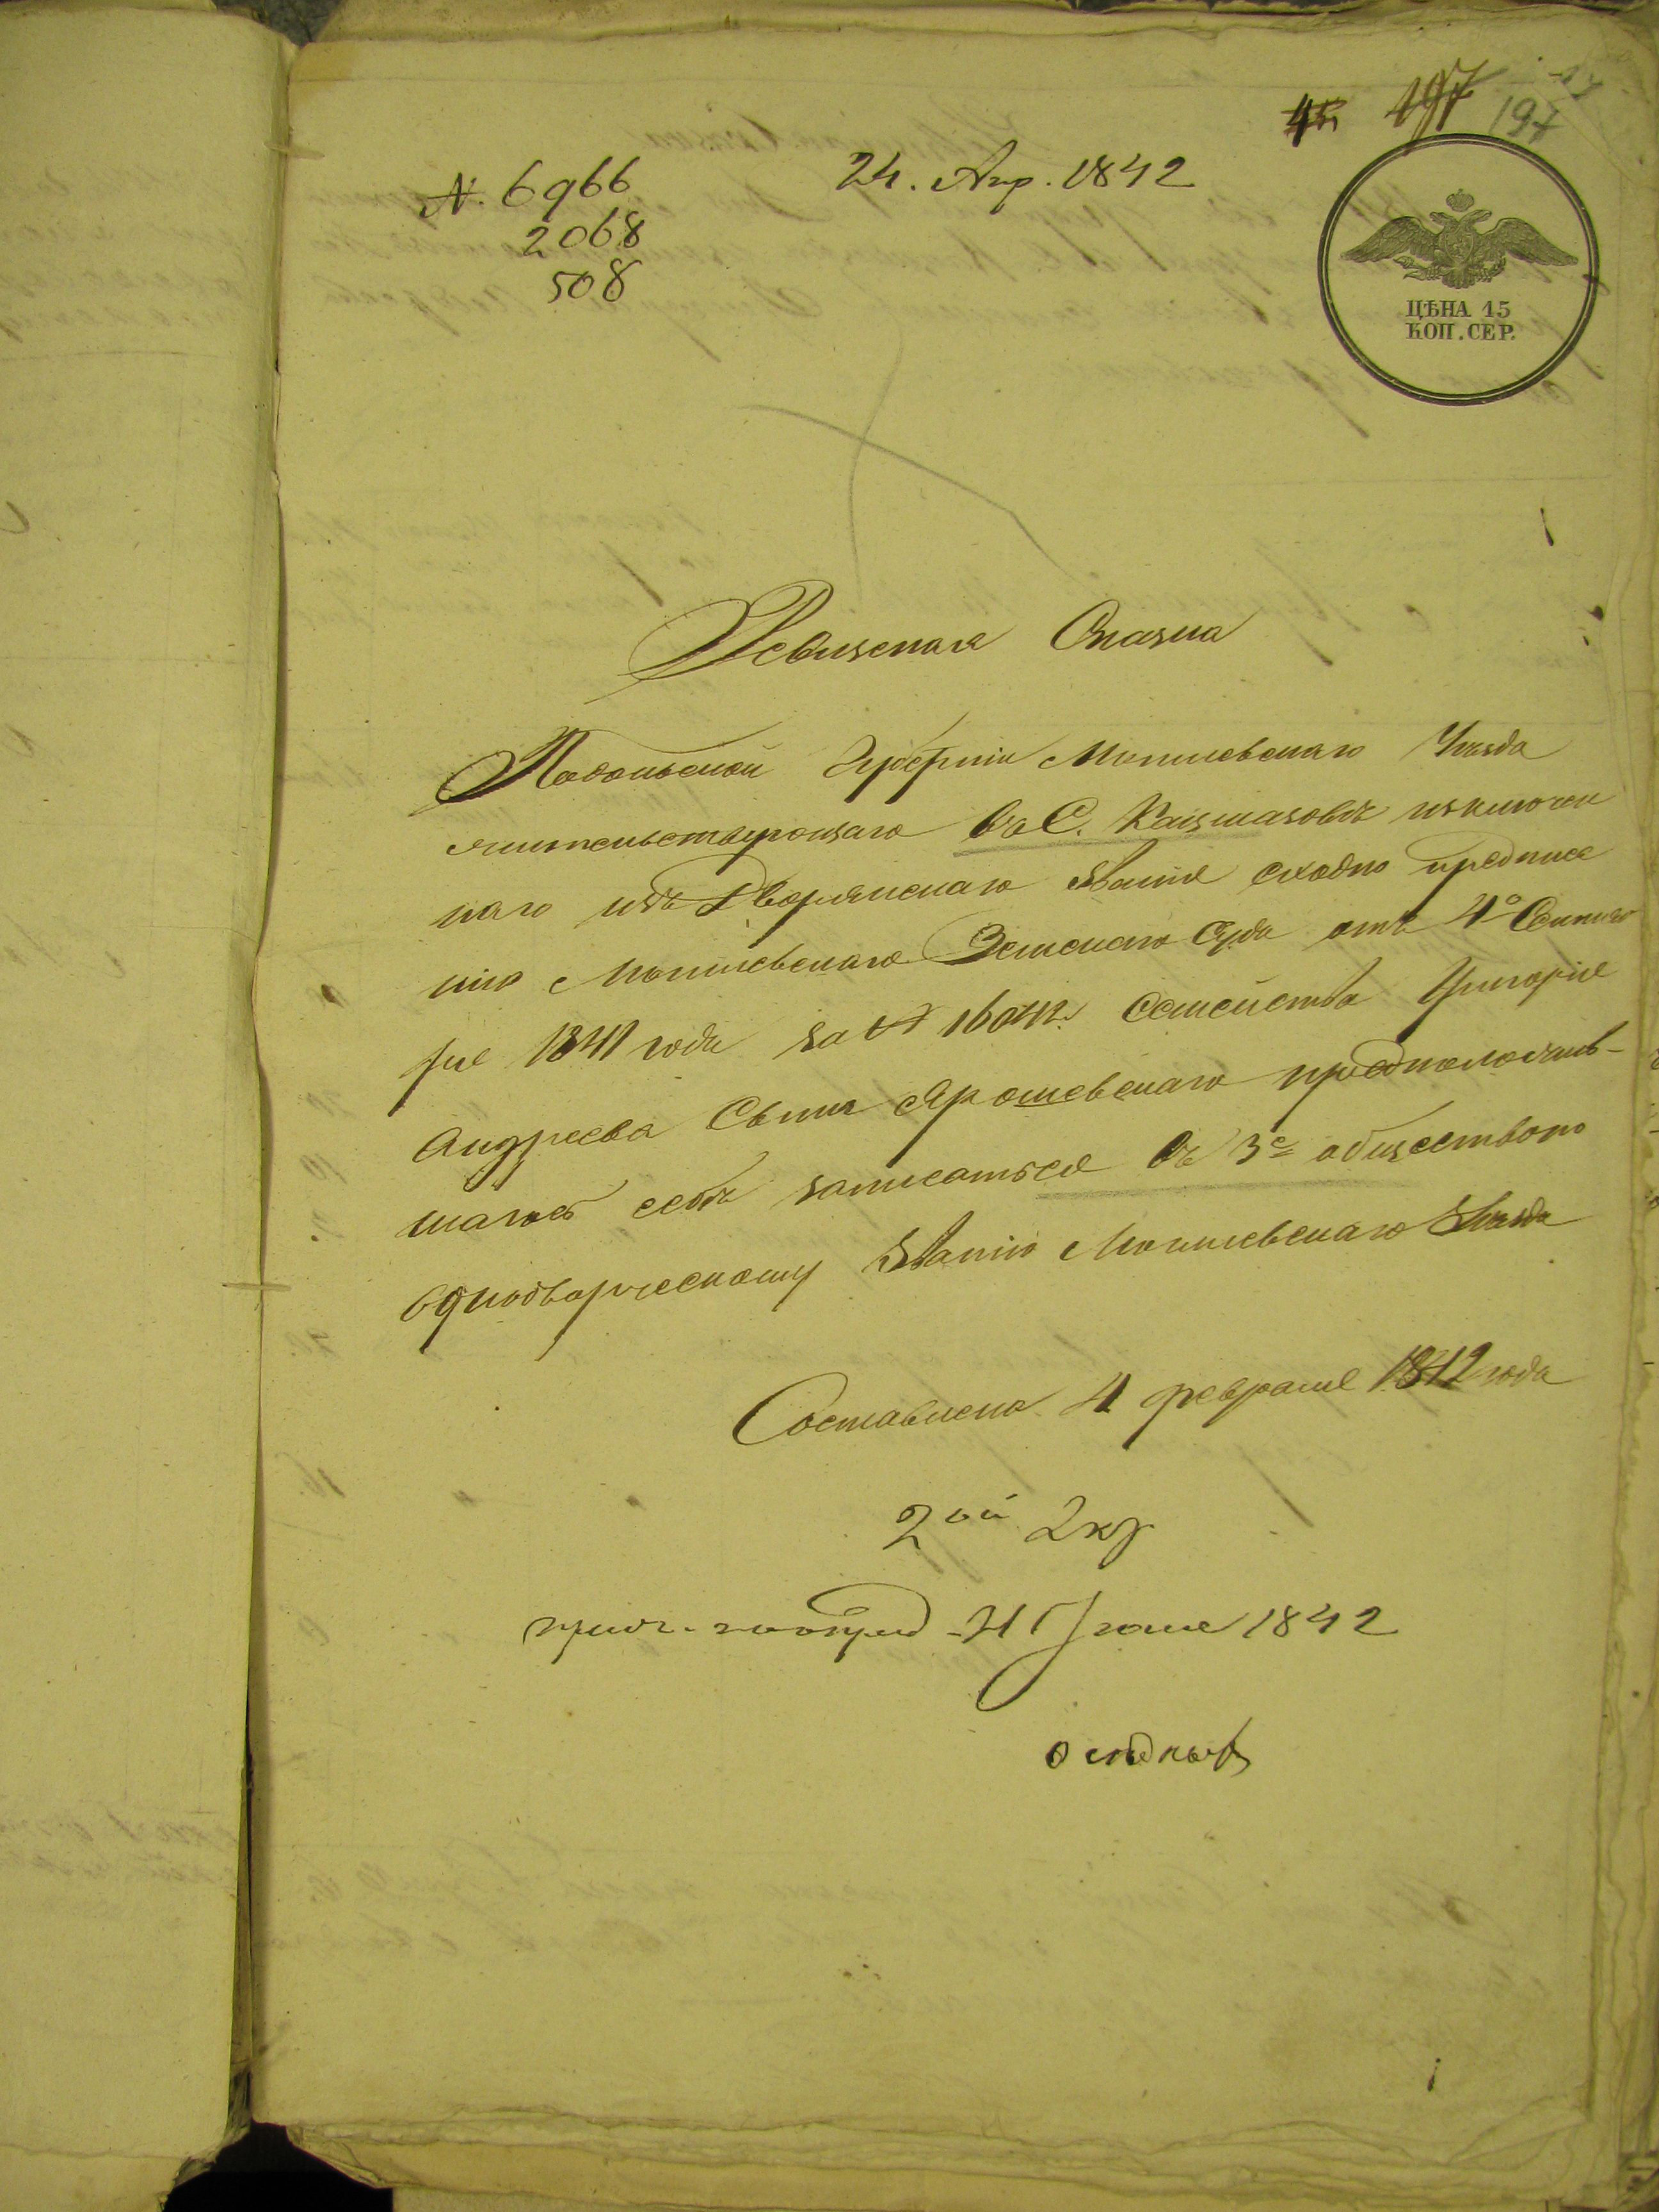 197 197
N. 6966 24. Апр. 1842
2068
508
ЦѢНА 15
КОП. СЕР.
Ревизская Сказка
Подольской Губерніи Могилевскаго Уѣзда
жительствующаго въ С. исключен
наго изъ Дворянскаго званія сходно предписа
нію Могилевскаго Земскаго Суда отъ 4º Сентяб
ря 1841 года за № 16042. Семейства Григорія
Андреева Сына Ярошевскаго предположив-
шагось себѣ записаться въ 3е общество по
однодворческому званію Могилевскаго Уѣзда
Составлена 4 февраля 1842 года
2ой Экз
1842